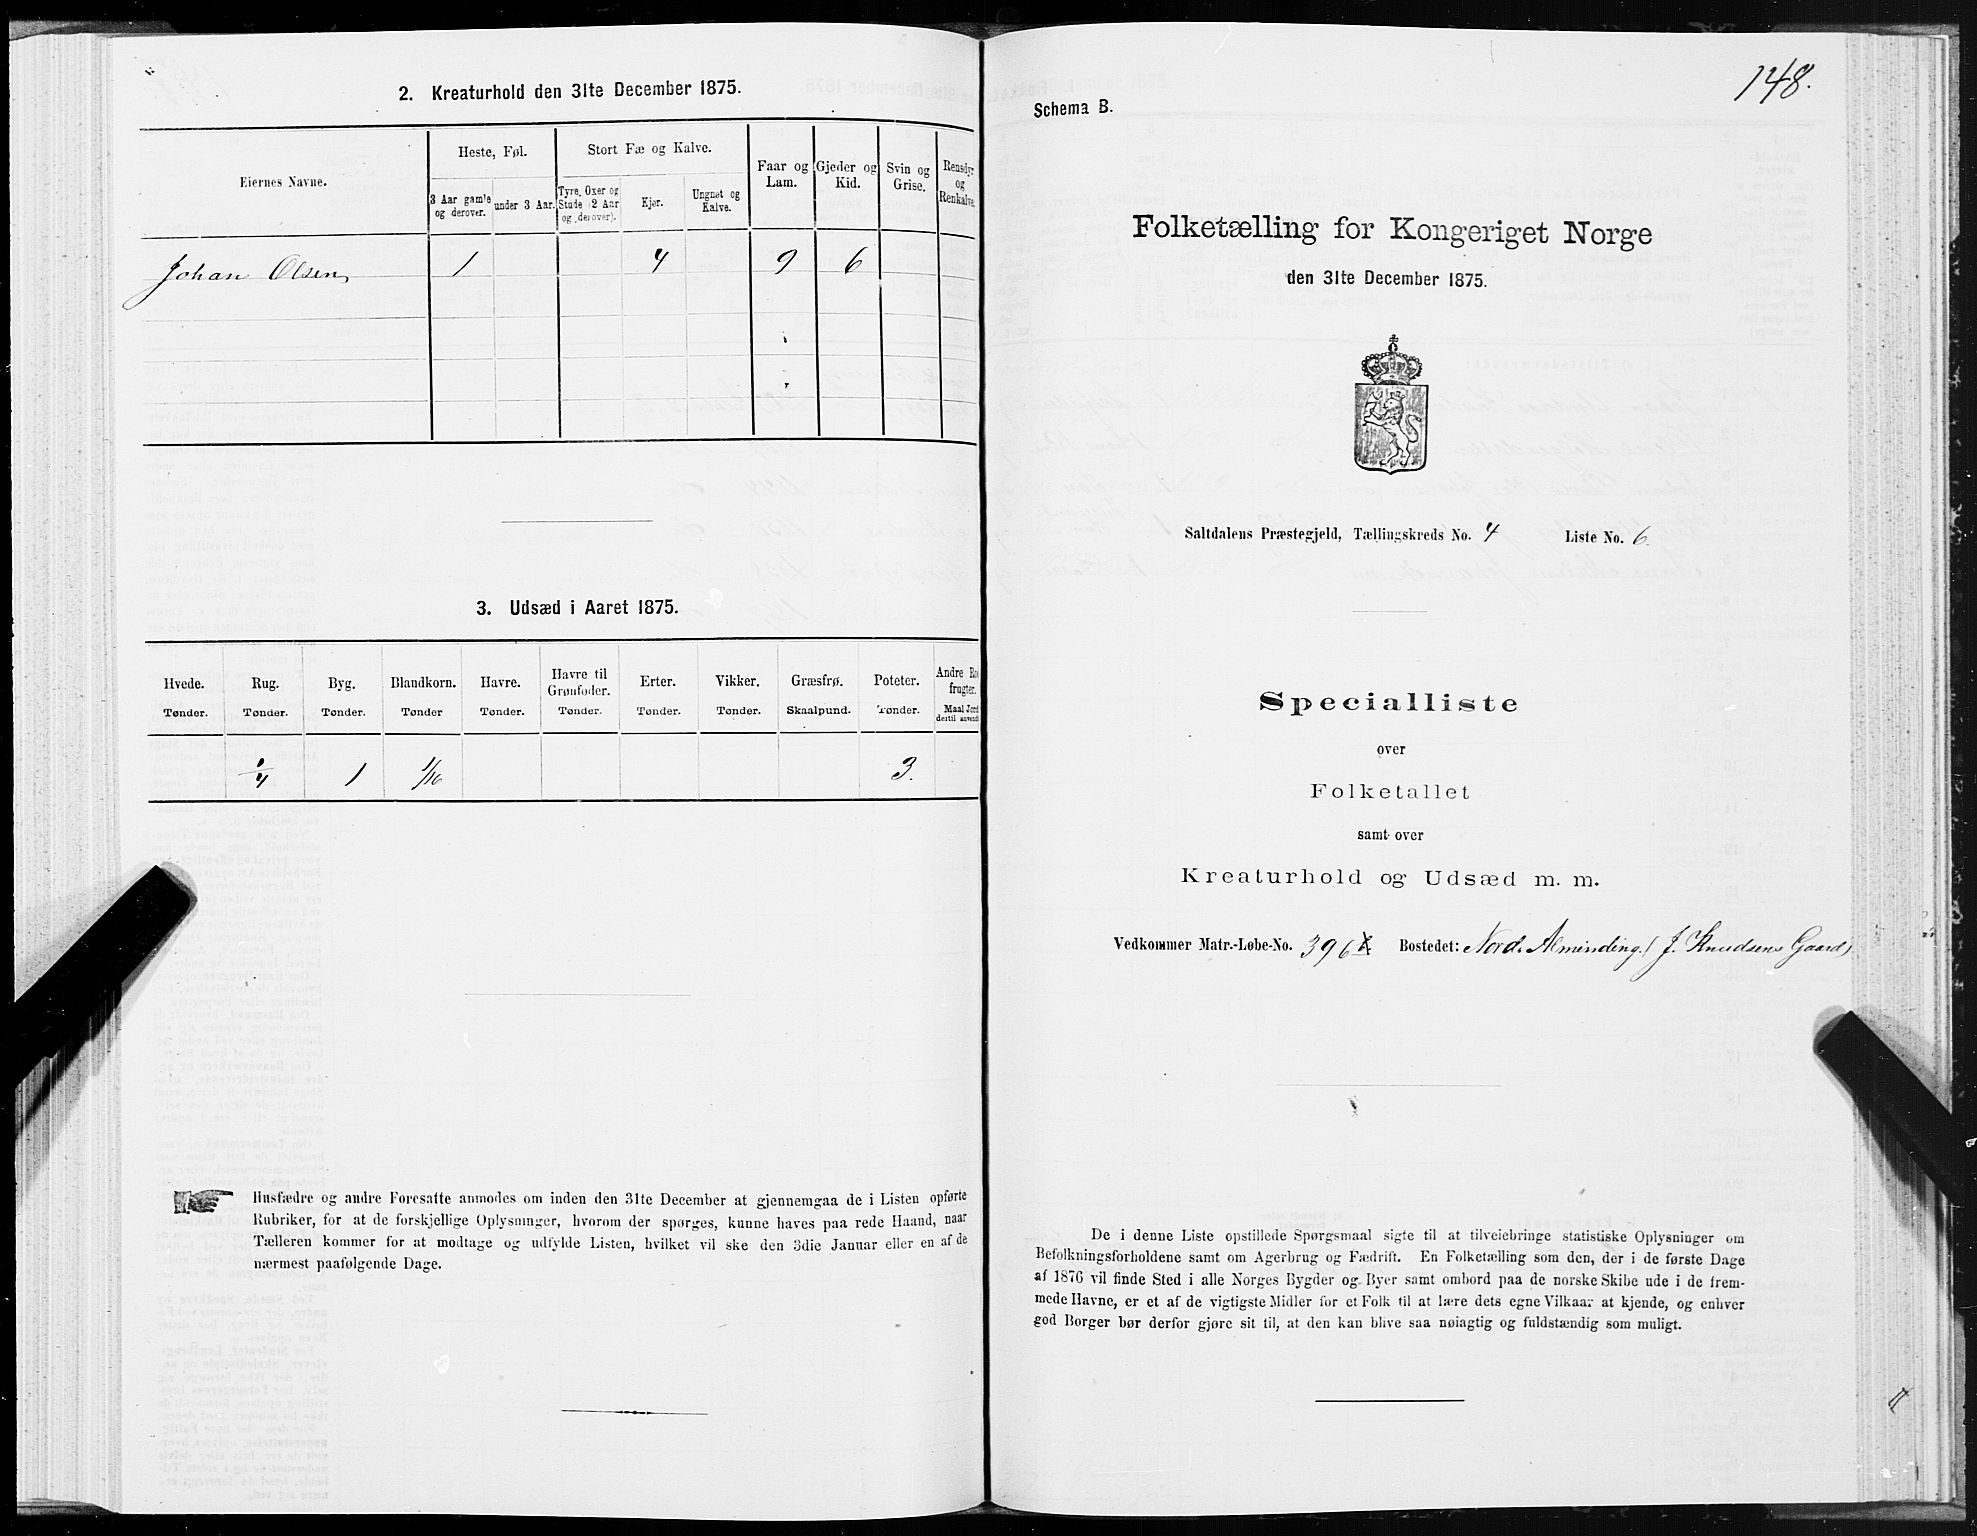 2. Kreaturhold den 31te December 1875.
Eiernes Navne.
Heste, Føl.
Stort Fæ og Kalve.
Faar og Lam.
Gjeder og Kid.
Svin og Grise.
Rensdyr og Renkalve.
3 Aar gamle og derover.
under 3 Aar.
Tyre, Oxer og Stude (2 Aar og derover).
Kjør.
Ungnet og Kalve.
Johan Olsen 1 4 9 6
3. Udsæd i Aaret 1875.
Hvede. Rug. Byg. Blandkorn. Havre. Havre til Grønfoder. Erter. Vikker. Græsfrø. Poteter. Andre Ro frugter.
Tønder. Tønder. Tønder. Tønder Tønder. Tønder. Tønder. Tønder. Skaalpund. Tønder. Maal Jord dertil anvendt
1/4 1 1/16 3.
Husfædre og andre Foresatte anmodes om inden den 31te December at gjennemgaa de i Listen opførte
Rubriker, for at de forskjellige Oplysninger, hvorom der spørges, kunne haves paa rede Haand, naar
Tælleren kommer for at modtage og udfylde Listen, hvilket vil ske den 3die Januar eller en af de
nærmest paafølgende Dage.
148.
Schema B.
Folketælling for Kongeriget Norge
den 31te December 1875.
Saltdalens Præstegjeld, Tællingskreds No. 4 Liste No. 6.
Specialliste
over
Folketallet
samt over
Kreaturhold og Udsæd m. m.
Vedkommer Matr.-Løbe-No. 396 Bostedet: Nord. Alminding. (J. Knudsens Gaard)
De i denne Liste opstillede Spørgsmaal sigte til at tilveiebringe statistiske Oplysninger om
Befolkningsforholdene samt om Agerbrug og Fædrift. En Folketælling som den, der i de første Dage
af 1876 vil finde Sted i alle Norges Bygder og Byer samt ombord paa de norske Skibe ude i de frem-
mede Havne, er et af de vigtigste Midler for et Folk til at lære dets egne Vilkaar at kjende, og enhver
god Borger bør derfor gjøre sit til, at den kan blive saa nøiagtig og fuldstændig som muligt.